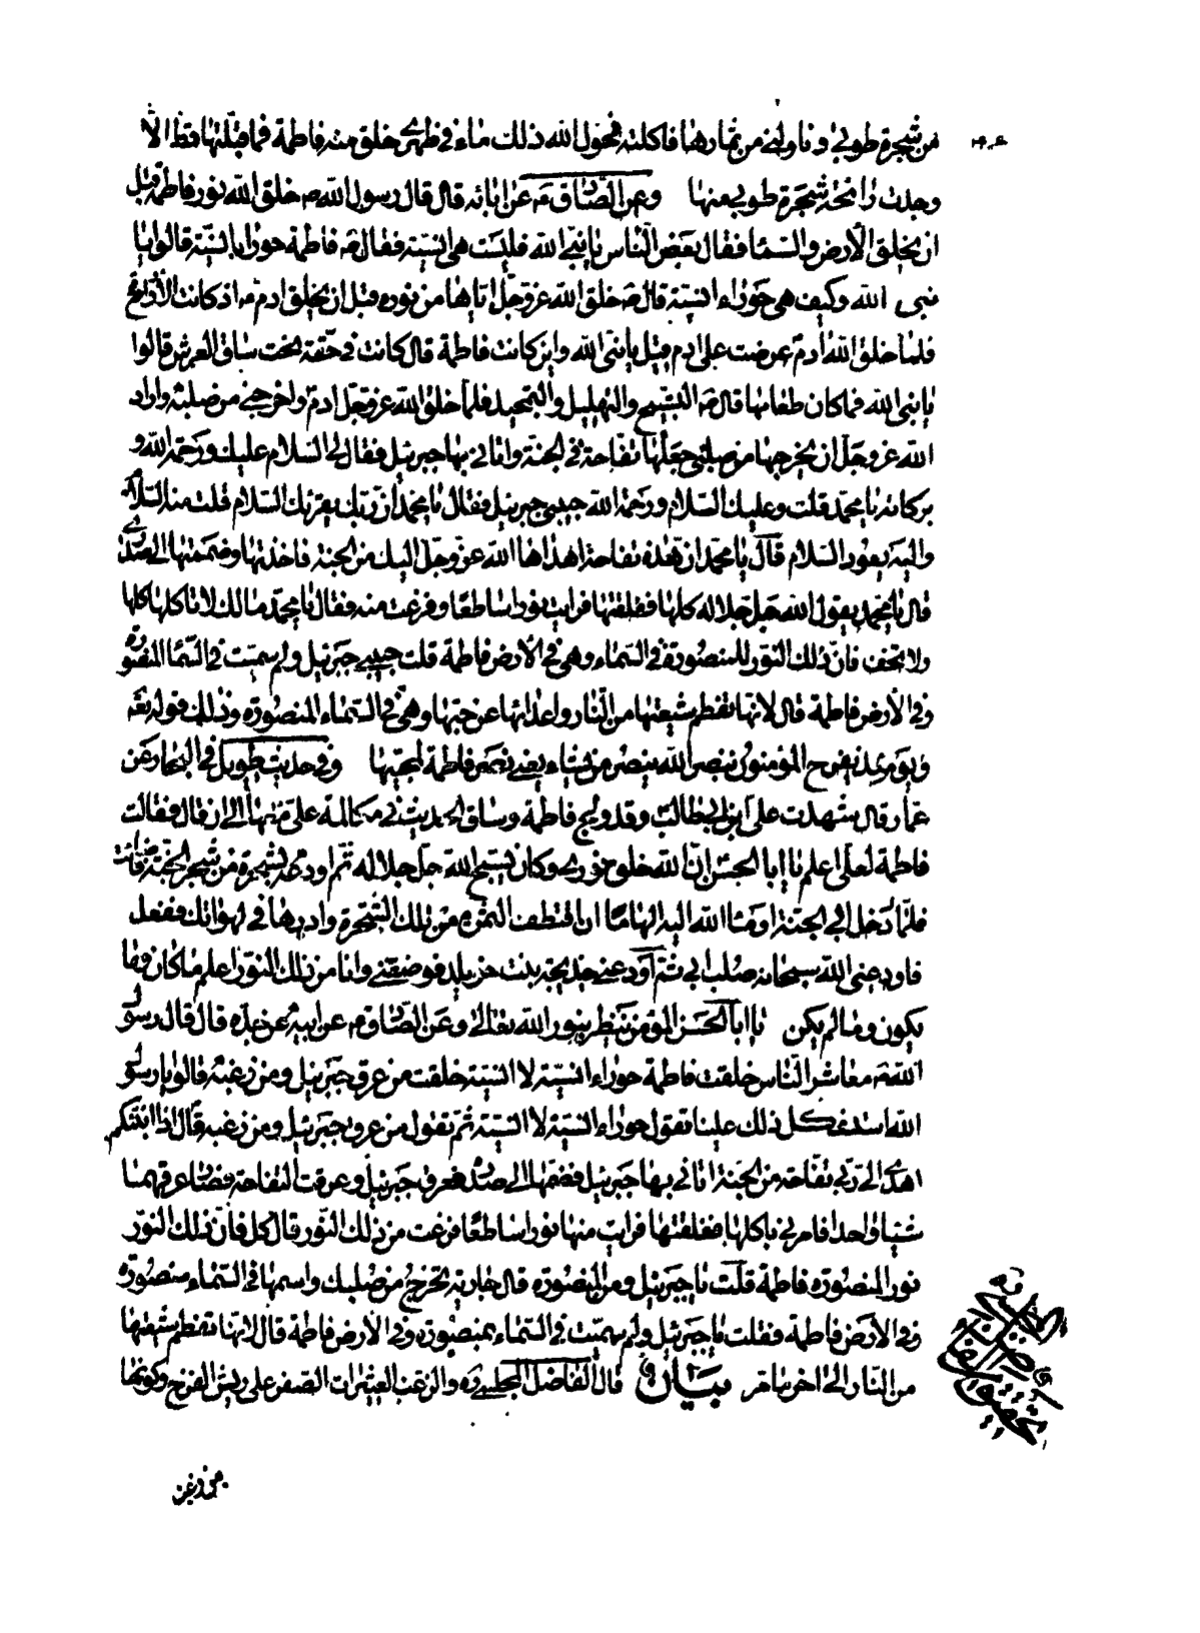 من شجرة طوبى وناولني من ثمارها فاكلته فحول الله ذلك ماء في ظهري خلق منه فاطمة فما قبلتها قط الا
وجدت رائحة شجرة طوبى منها وعن الصادق عن ابائه قال قال رسول الله ص خلق الله نور فاطمة قبل
ان يخلق الارض والسماء فقال بعض الناس يا نبي الله فليست هي انسية فقال ص فاطمة حوراء انسية قالوا يا
نبي الله وكيف هي حوراء انسية قال ص خلق الله عز وجل اياها من نوره قبل ان يخلق ادم اذ كانت الارواح
فلما خلق الله ادم عرضت على ادم قيل يا نبي الله واين كانت فاطمة قال كانت في حقة تحت ساق العرش قالوا
يا نبي الله فما كان طعامها قال ص التسبيح والتهليل والتمجيد فلما خلق الله عز وجل ادم واخرجني من صلبه واراد
الله عز وجل ان يخرجها من صلبي جعلها تفاحة في الجنة واتاني بها جبرئيل فقال لي السلام عليك ورحمة الله و
بركاته يا محمد قلت وعليك السلام ورحمة الله حبيبي جبرئيل فقال يا محمد ان ربك يقرئك السلام قلت منه السلام
واليه يعود السلام قال يا محمد ان هذه تفاحة اهداها الله عز وجل اليك من الجنة فاخذتها وضممتها الى صدري
قال يا محمد يقول الله جل جلاله كلها ففلقتها فرايت نورا ساطعا وفزعت منه فقال يا محمد مالك لا تاكلها كلها
ولا تخف فان ذلك النور للمنصورة في السماء وهي في الارض فاطمة قلت حبيبي جبرئيل ولم سميت في السماء المنصورة
وفي الارض فاطمة قال لانها تفطم شيعتها من النار واعدائها عن حبها وهي في السماء المنصورة وذلك قوله تعه
ويومئذ يفرح المؤمنون بنصر الله ينصر من يشاء يعني نصر فاطمة لمحبيها وفي حديث طويل في البحار عن
عمار قال شهدت علي ابن ابي طالب وقد ولج فاطمة وساق الحديث في مكالمة علي معها الى ان قال فقالت
فاطمة لعلي اعلم يا ابا الحسن ان الله خلق نوري وكان يسبح الله جل جلاله ثم اودعه بشجرة من شجر الجنة فاضائت
فلما دخل ابي الجنة اوحى الله اليه الهاما ان اقتطف الثمرة من تلك الشجرة وادرها في لهواتك ففعل
فاودعني الله سبحانه صلب ابي ثم اودعني خديجة بنت خويلد فوضعتني وانا من ذلك النور اعلم ما كان وما
يكون وما لم يكن يا ابا الحسن المؤمن ينظر بنور الله تعالى وعن الصادق عن ابيه عن جده قال قال رسول
الله ص معاشر الناس خلقت فاطمة حوراء انسية لا انسية خلقت من عرق جبرئيل ومن زغبه قالوا يا رسول
الله استشكل ذلك علينا تقول حوراء انسية لا انسية ثم تقول من عرق جبرئيل ومن زغبه قال اذا انبئكم
اهدى الي ربي تفاحة من الجنة اتاني بها جبرئيل فضمها الى صدره فعرق جبرئيل وعرقت التفاحة فصار عرقهما
شيئا واحدا فامرني باكلها ففلقتها فرايت منها نورا ساطعا فزعت من ذلك النور قال كل فان ذلك النور
نور المنصورة فاطمة قلت يا جبرئيل ومن المنصورة قال جارية تخرج من صلبك واسمها في السماء منصورة
وفي الارض فاطمة فقلت يا جبرئيل ولم سميت في السماء بمنصورة وفي الارض فاطمة قال لانها تفطم شيعتها
من النار الى اخر ما مر بيان قال الفاضل المجلسي ره والزغب الشعيرات الصفر على ريش الفرخ وكونها